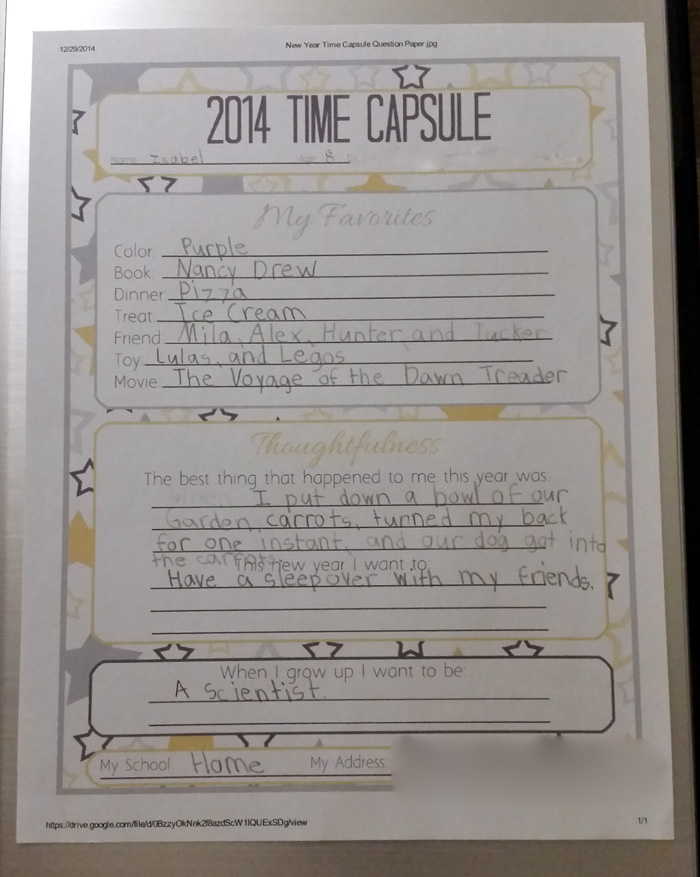 12/29/2014 New Year Time Capsule Question Paper.jpg
2014 TIME CAPSULE
Name Isabel Age 8
My Favorites
Color Purple
Book Nancy Drew
Dinner Pizza
Treat Ice Cream
Friend: Mila, Alex, Hunter and Tucker
Toy Lulas, and Legos
Movie The Voyage of the Dawn Treader
Thoughtfulness
The best thing that happened to me this year was:
I put down a bowl of our
Garden carrots, turned my back
for one instant, and our dog got into
the carrots.
This new year I want to:
Have a sleepover with my friends.
When I grow up I want to be:
A Scientist.
My School: Home My Address:
https://drive.google.com/file/d/0BzzyOkNnk2f8azdScW1IQUExSDg/view 1/1